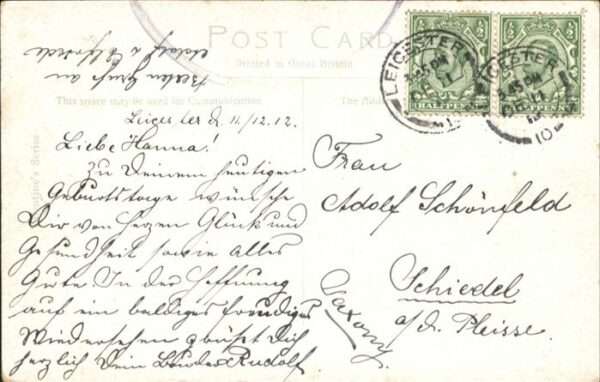 POST CARD
Printed in Great Britain
This space may be used for Communication
The Address
Besten Gruß an
Adolf u
Leicester d. 11/12.12.
Liebe Hanna!
Zu Deinem heutigen
Geburtstage wünsche
Dir von Herzen Glück und
Gesundheit sowie alles
Gute In der Hoffnung
auf ein baldiges freudiges
Wiedersehen grüßt Dich
herzlich Dein Bruder Rudolf
Frau
Adolf Schönfeld
Schiedel
a/d. Pleisse.
Saxony
LEICESTER
HALFPENNY
HALFPENNY